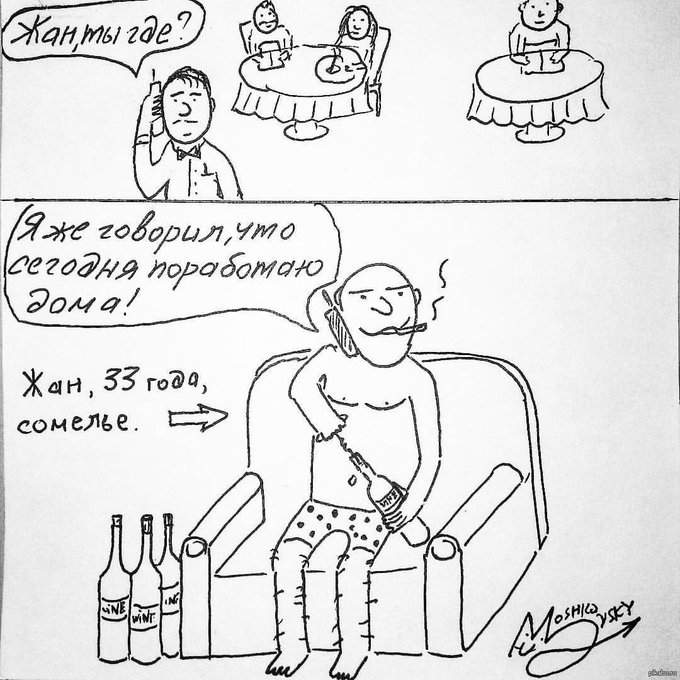 Жан,ты где?
Я же говорил,что
сегодня поработаю
дома!
Жан, 33 года,
сомелье.
WINE
WINE
WINE
MOSHKOVSKY
pikabu.ru